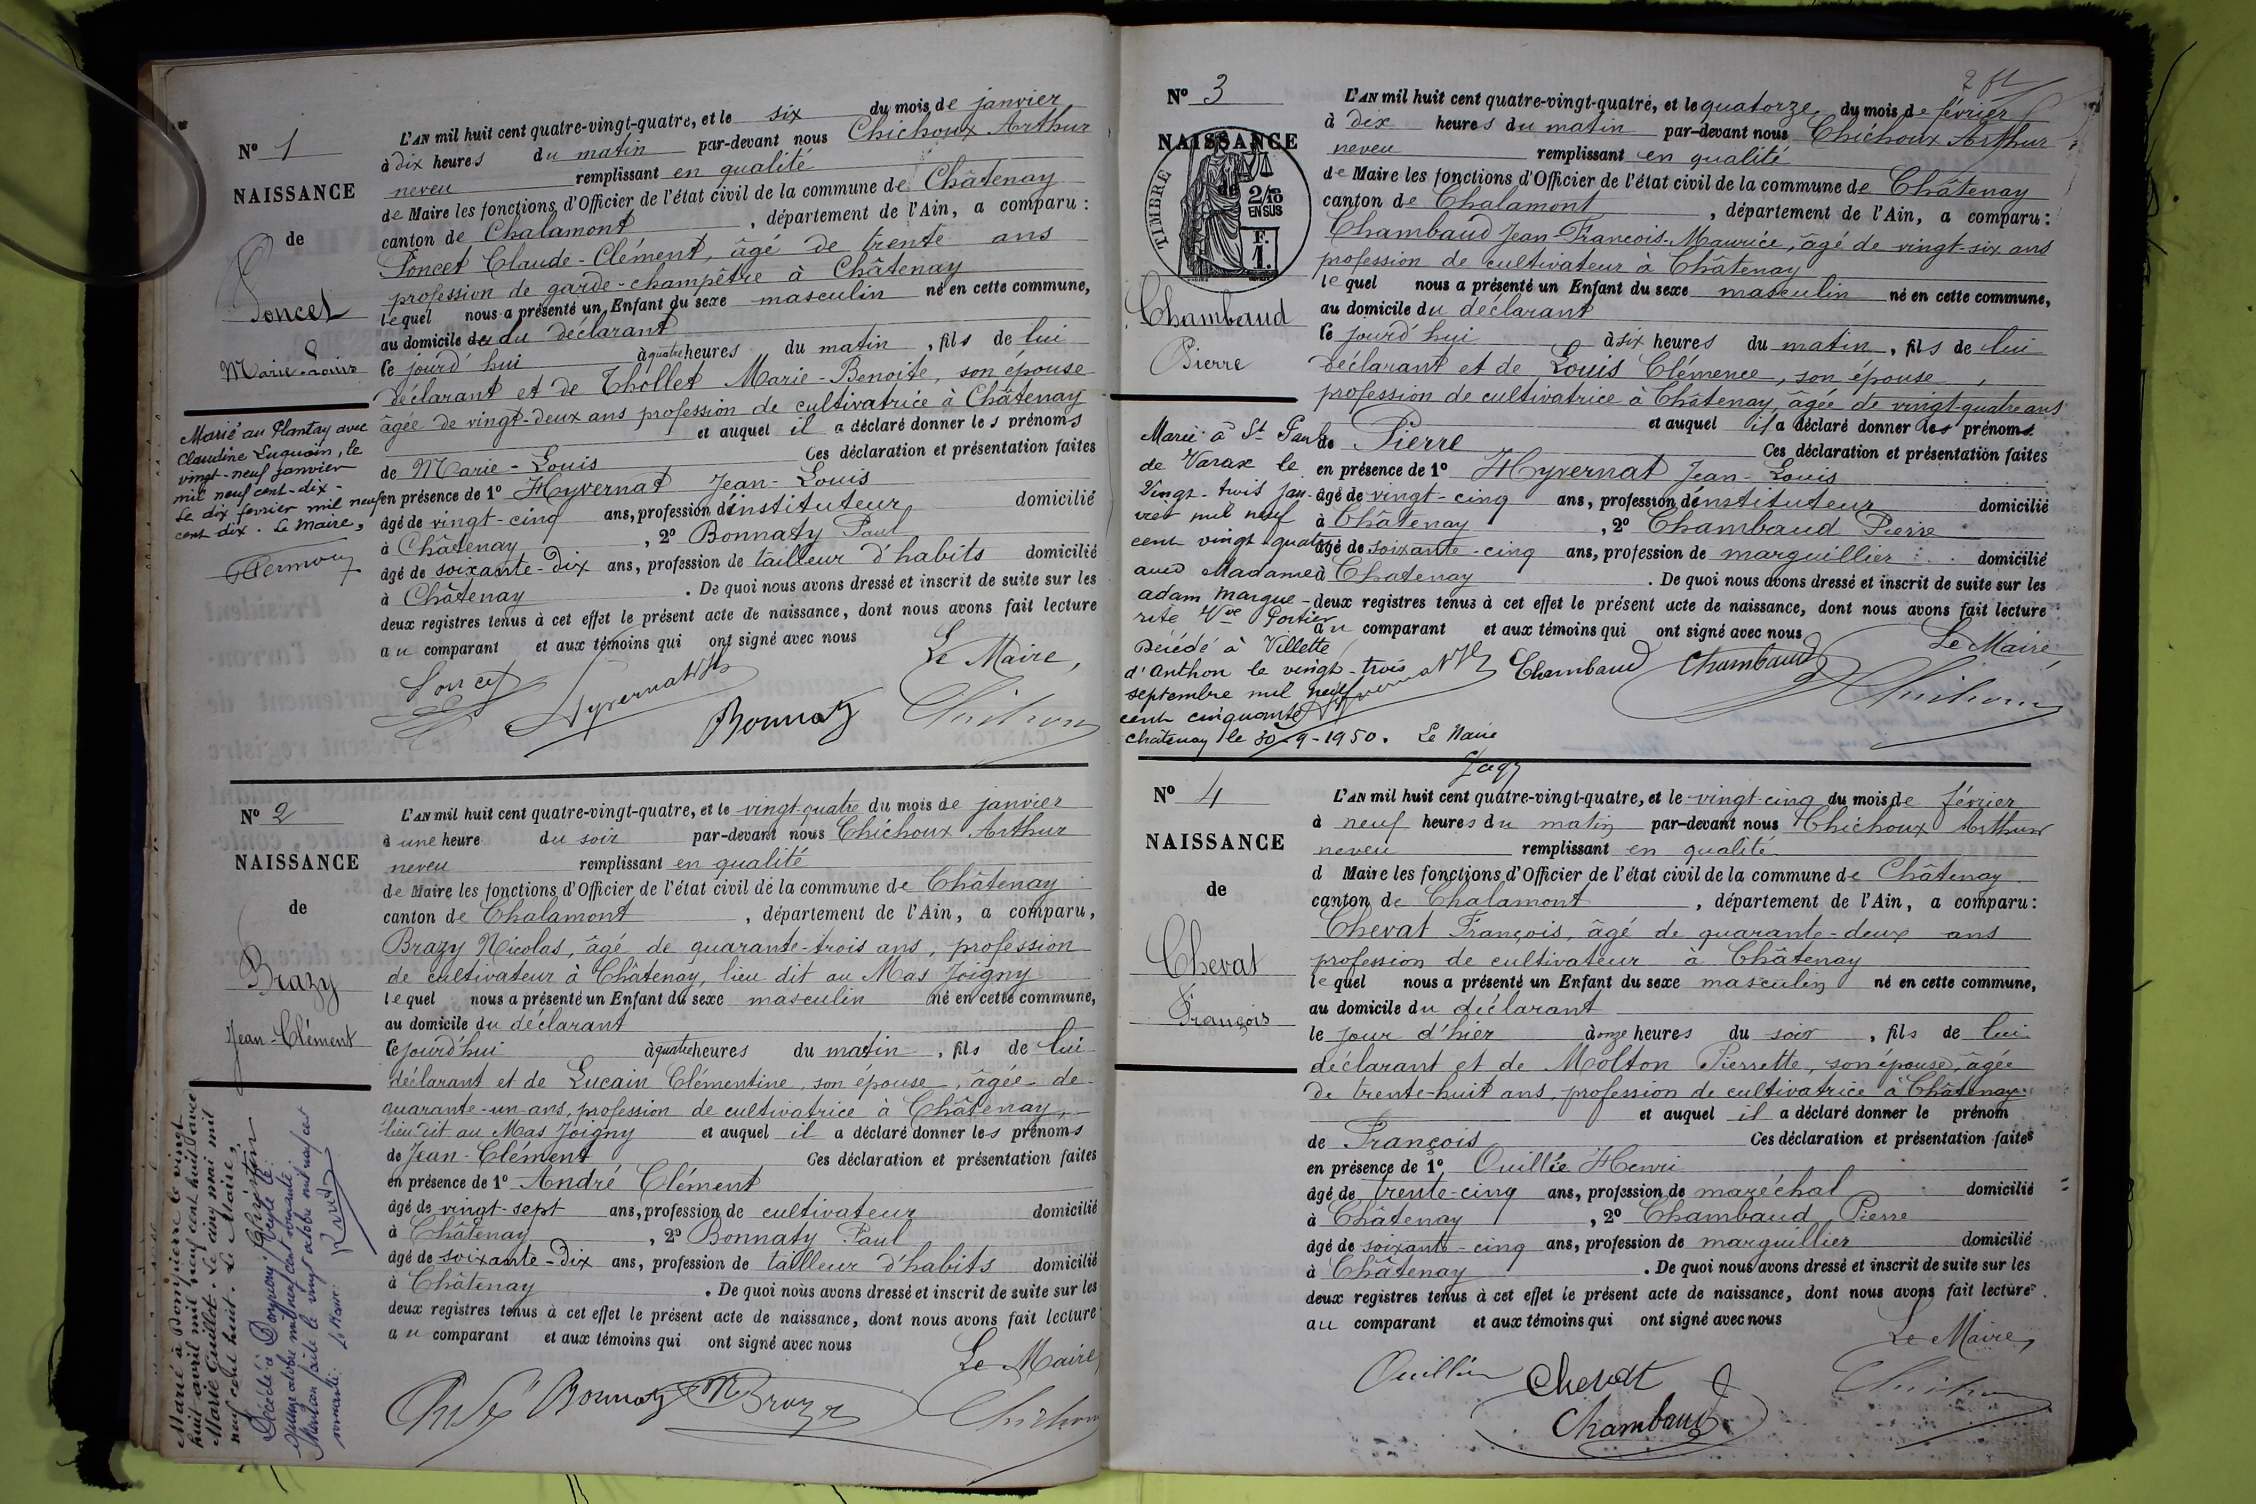 Nº 1
NAISSANCE
de
Poncet
Marie-Louis
L'AN mil huit cent quatre-vingt-quatre, et le six du mois de janvier
à dix heures du matin par-devant nous Chichoux Arthur
neveu remplissant en qualité
de Maire les fonctions d'Officier de l'état civil de la commune de Châtenay
canton de Chalamont, département de l'Ain, a comparu :
Poncet Claude-Clément, âgé de trente ans
profession de garde-champêtre à Châtenay
lequel nous a présenté un Enfant du sexe masculin né en cette commune,
au domicile du déclarant
le jourd'hui à quatre heures du matin, fils de lui
déclarant et de Thollet Marie-Benoite, son épouse
âgée de vingt-deux ans profession de cultivatrice à Châtenay
et auquel il a déclaré donner les prénoms
de Marie-Louis Ces déclaration et présentation faites
en présence de 1º Hyvernat Jean-Louis
âgé de vingt-cinq ans, profession d'instituteur domicilié
à Châtenay, 2º Bonnaty Paul
âgé de soixante-dix ans, profession de tailleur d'habits domicilié
à Châtenay. De quoi nous avons dressé et inscrit de suite sur les
deux registres tenus à cet effet le présent acte de naissance, dont nous avons fait lecture
au comparant et aux témoins qui ont signé avec nous
Le Maire,
Poncet Hyvernat Bonnaty Chichoux
Marié au Plantay avec
Claudine Luquain, le
vingt-neuf janvier
mil neuf cent-dix-
Le dix février mil neuf
cent dix. Le Maire,
Nº 2
NAISSANCE
de
Brazy
Jean-Clément
L'AN mil huit cent quatre-vingt-quatre, et le vingt-quatre du mois de janvier
à une heure du soir par-devant nous Chichoux Arthur
neveu remplissant en qualité
de Maire les fonctions d'Officier de l'état civil de la commune de Châtenay
canton de Chalamont, département de l'Ain, a comparu,
Brazy Nicolas, âgé de quarante-trois ans, profession
de cultivateur à Châtenay, lieu dit au Mas Joigny
lequel nous a présenté un Enfant du sexe masculin né en cette commune,
au domicile du déclarant
le jourd'hui à quatre heures du matin, fils de lui
déclarant et de Lucain Clémentine, son épouse, âgée de
quarante-un ans, profession de cultivatrice à Châtenay,
lieu dit au Mas Joigny et auquel il a déclaré donner les prénoms
de Jean-Clément Ces déclaration et présentation faites
en présence de 1º André Clément
âgé de vingt-sept ans, profession de cultivateur domicilié
à Châtenay, 2º Bonnaty Paul
âgé de soixante-dix ans, profession de tailleur d'habits domicilié
à Châtenay. De quoi nous avons dressé et inscrit de suite sur les
deux registres tenus à cet effet le présent acte de naissance, dont nous avons fait lecture
au comparant et aux témoins qui ont signé avec nous
Le Maire,
André Bonnaty Brazy Chichoux
Marié à Dompierre le vingt
huit avril mil neuf cent huit avec
Marie Guillet. Le cinq mai mil
neuf cent huit. Le Maire,
Décédé à
quinze octobre mil neuf cent soixante
Mention faite le vingt octobre mil neuf cent
soixante. Le Maire.
Nº 3
NAISSANCE
de
TIMBRE
2/10
EN SUS
F.
1.
Chambaud
Pierre
L'AN mil huit cent quatre-vingt-quatre, et le quatorze du mois de février
à dix heures du matin par-devant nous Chichoux Arthur
neveu remplissant en qualité
de Maire les fonctions d'Officier de l'état civil de la commune de Châtenay
canton de Chalamont, département de l'Ain, a comparu :
Chambaud Jean-François-Maurice, âgé de vingt-six ans
profession de cultivateur à Châtenay
lequel nous a présenté un Enfant du sexe masculin né en cette commune,
au domicile du déclarant
le jourd'hui à six heures du matin, fils de lui
déclarant et de Louis Clémence, son épouse,
profession de cultivatrice à Châtenay âgée de vingt-quatre ans
et auquel il a déclaré donner les prénoms
de Pierre Ces déclaration et présentation faites
en présence de 1º Hyvernat Jean-Louis
âgé de vingt-cinq ans, profession d'instituteur domicilié
à Châtenay, 2º Chambaud Pierre
âgé de soixante-cinq ans, profession de marguillier domicilié
à Chatenay. De quoi nous avons dressé et inscrit de suite sur les
deux registres tenus à cet effet le présent acte de naissance, dont nous avons fait lecture
au comparant et aux témoins qui ont signé avec nous
Le Maire
Hyvernat Chambaud Chambaud Chichoux
Marié à St Paul
de Varax le
Vingt-trois jan-
vier mil neuf
cent vingt-quatre
avec Madame
adam Margue-
rite Vve Portier
Décédé à Villette
d'Anthon le vingt-trois
septembre mil neuf
cent cinquante
Chatenay le 30-9-1950. Le Maire
Nº 4
NAISSANCE
de
Chevat
François
L'AN mil huit cent quatre-vingt-quatre, et le vingt-cinq du mois de février
à neuf heures du matin par-devant nous Chichoux Arthur
neveu remplissant en qualité
d Maire les fonctions d'Officier de l'état civil de la commune de Châtenay
canton de Chalamont, département de l'Ain, a comparu :
Chevat François, âgé de quarante-deux ans
profession de cultivateur à Châtenay
lequel nous a présenté un Enfant du sexe masculin né en cette commune,
au domicile du déclarant
le jour d'hier à onze heures du soir, fils de lui
déclarant et de Molton Pierrette, son épouse, âgée
de trente-huit ans, profession de cultivatrice à Châtenay
et auquel il a déclaré donner le prénom
de François Ces déclaration et présentation faites
en présence de 1º Ouillée Henri
âgé de trente-cinq ans, profession de maréchal domicilié
à Châtenay, 2º Chambaud Pierre
âgé de soixante-cinq ans, profession de marguillier domicilié
à Châtenay. De quoi nous avons dressé et inscrit de suite sur les
deux registres tenus à cet effet le présent acte de naissance, dont nous avons fait lecture
au comparant et aux témoins qui ont signé avec nous
Le Maire,
Ouillée Chevat Chichoux
Chambaud